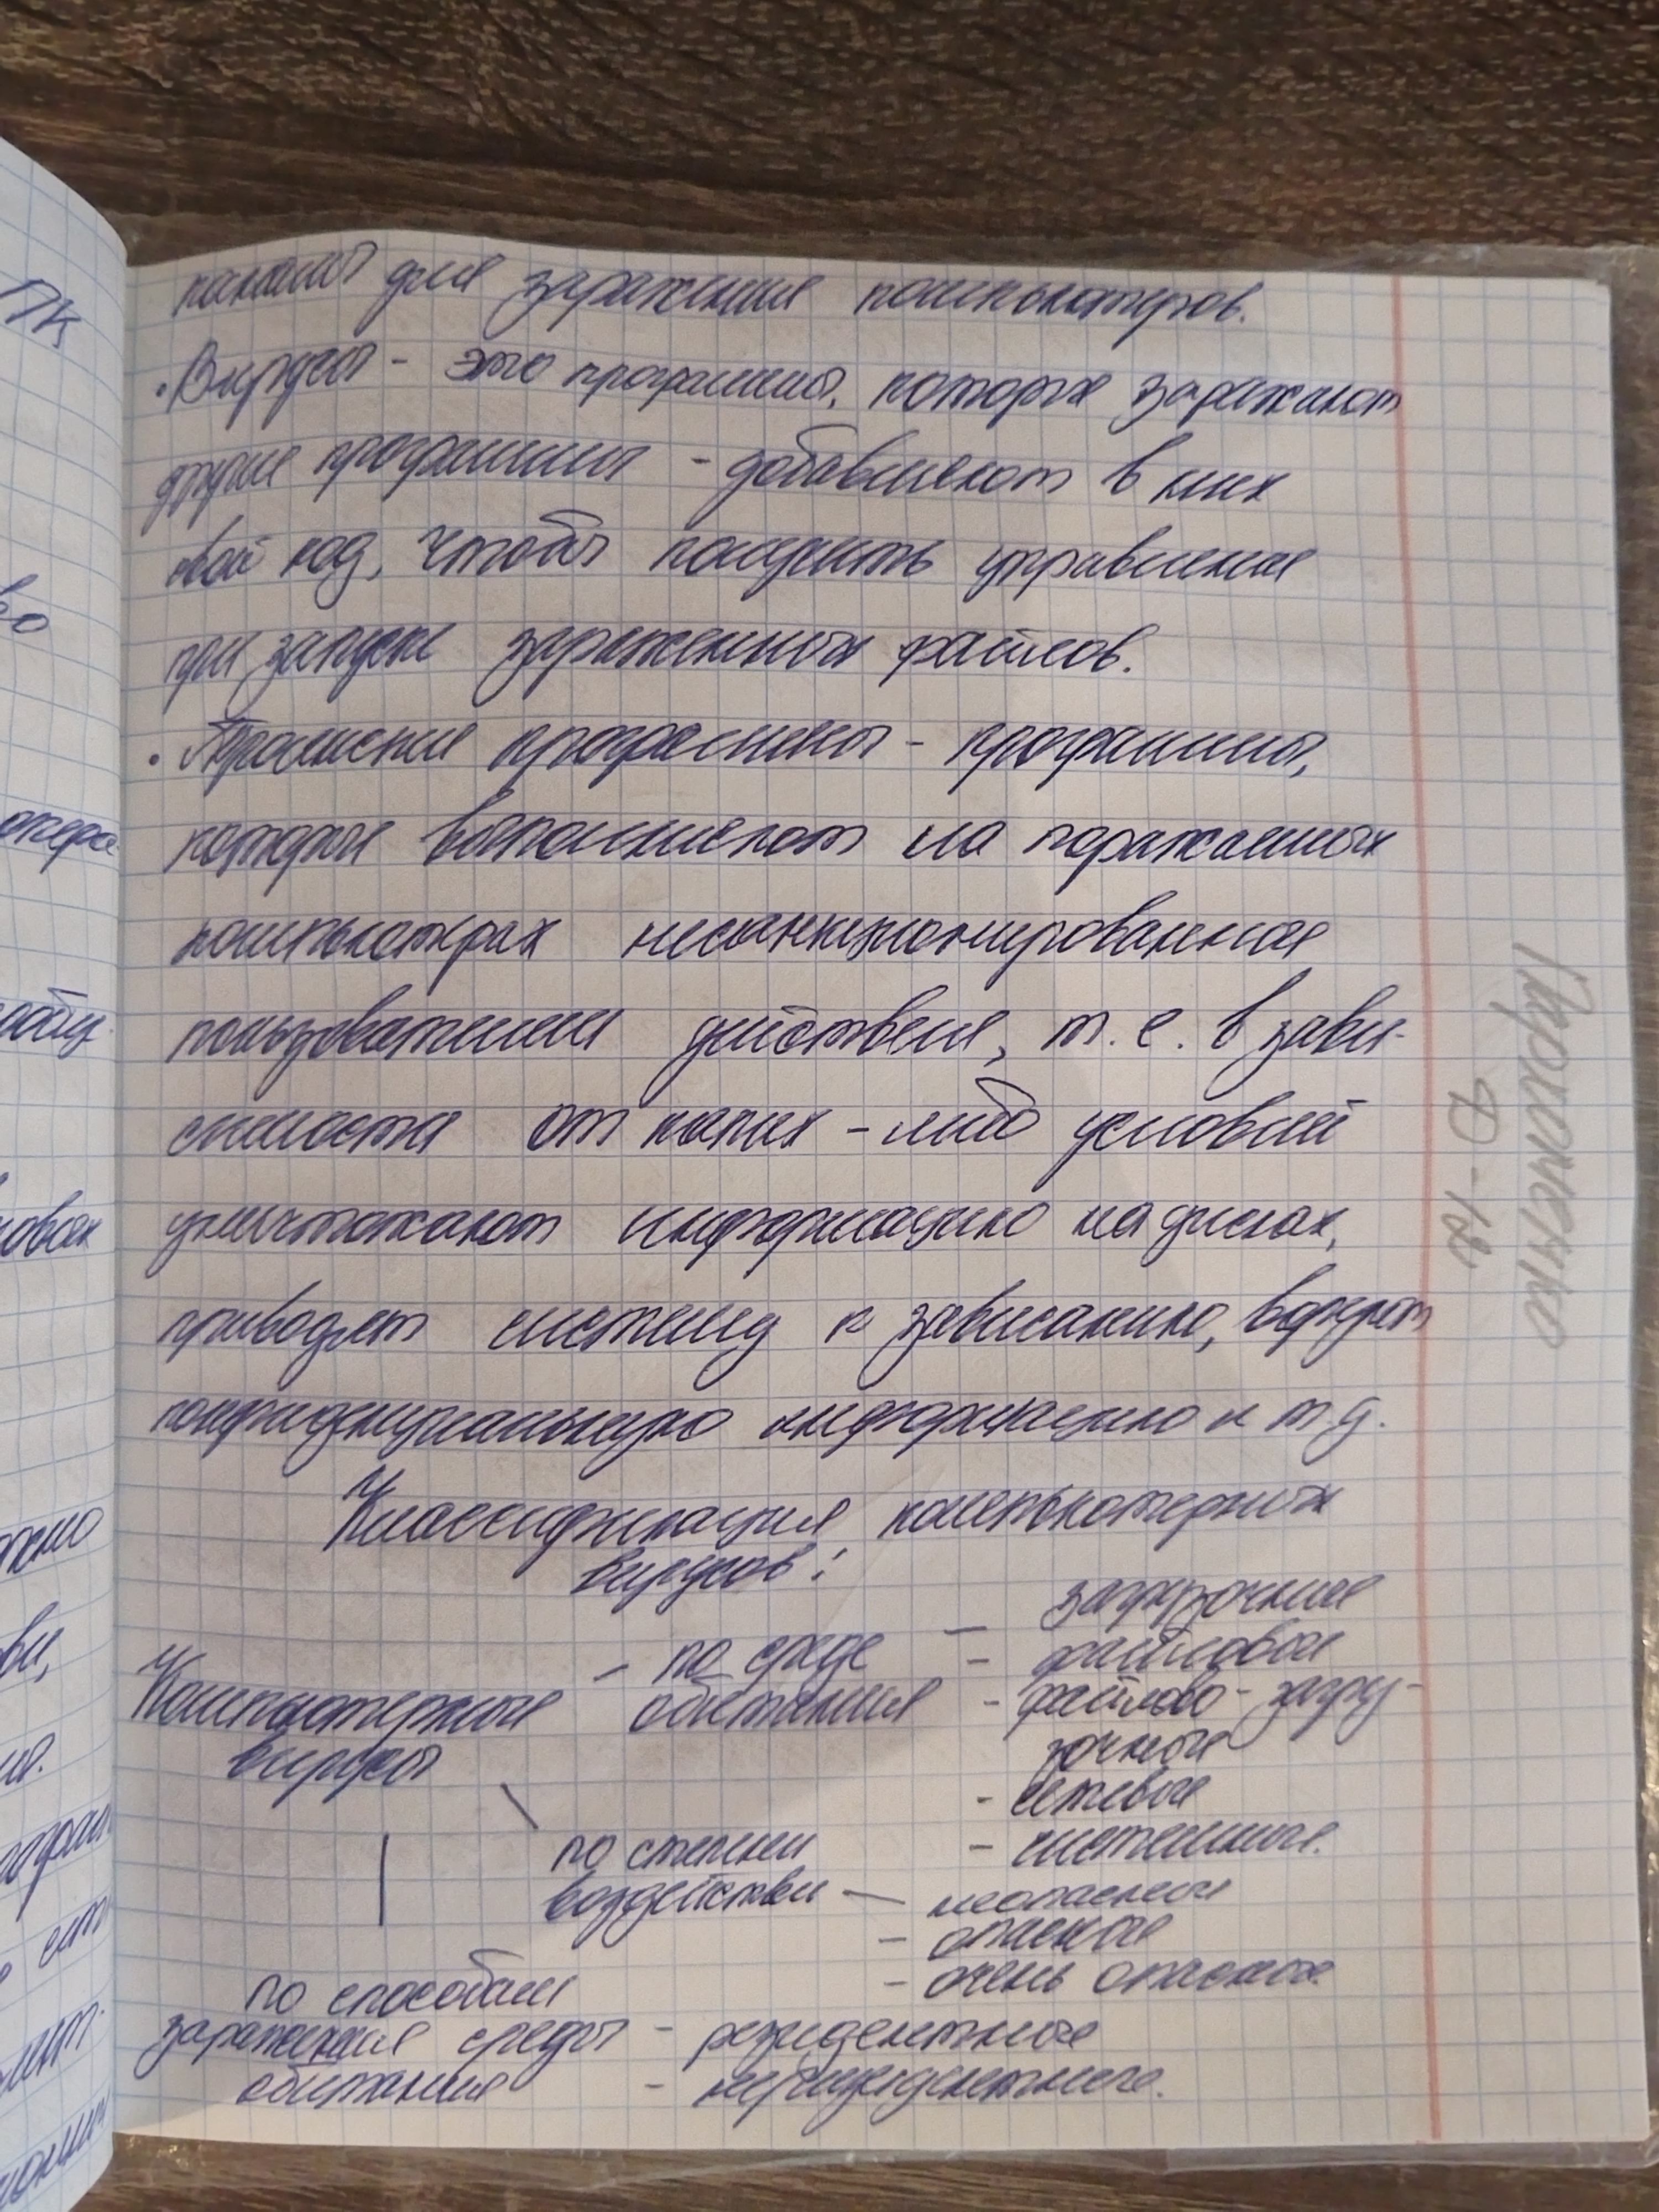 каналы для заражения компьютеров.
• Вирусы - это программы, которые заражают
другие программы - добавляют в них
свой код, чтобы получить управление
при запуске зараженных файлов.
• Троянские программы - программы,
которые выполняют на поражаемых
компьютерах несанкционированные
пользователем действия, т.е. в зави-
симости от каких-либо условий
уничтожают информацию на дисках,
приводят систему к зависанию, воруют
конфиденциальную информацию и т.д.
Классификация компьютерных
вирусов:
Компьютерные
вирусы
- по среде
обитания
- загрузочные
- файловые
- файлово-загру-
зочные
- сетевые
- системные.
по степени
воздействи
- неопасные
- опасные
- очень опасные
по способам
заражения среды
обитания
- резидентные
- нерезидентные.
ПК
во
овах
ви,
ия.
Ф-18